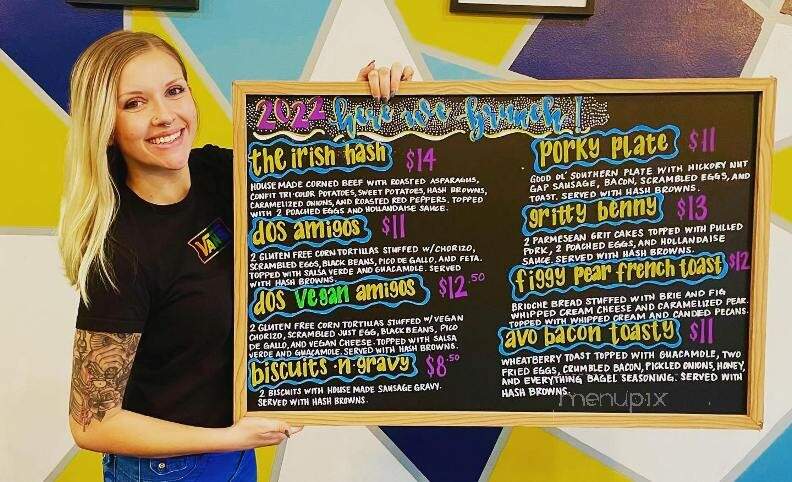 2022 here we brunch!
the irish hash $14
HOUSE MADE CORNED BEEF WITH ROASTED ASPARAGUS,
CONFIT TRI-COLOR POTATOES, SWEET POTATOES, HASH BROWNS,
CARAMELIZED ONIONS, AND ROASTED RED PEPPERS. TOPPED
WITH 2 POACHED EGGS AND HOLLANDAISE SAUCE.
dos amigos $11
2 GLUTEN FREE CORN TORTILLAS STUFFED W/CHORIZO,
SCRAMBLED EGGS, BLACK BEANS, PICO DE GALLO, AND FETA.
TOPPED WITH SALSA VERDE AND GUACAMOLE. SERVED
WITH HASH BROWNS.
dos vegan amigos $12.50
2 GLUTEN FREE CORN TORTILLAS STUFFED W/VEGAN
CHORIZO, SCRAMBLED JUST EGG, BLACK BEANS, PICO
DE GALLO, AND VEGAN CHEESE. TOPPED WITH SALSA
VERDE AND GUACAMOLE. SERVED WITH HASH BROWNS.
biscuits -n- gravy $8.50
2 BISCUITS WITH HOUSE MADE SAUSAGE GRAVY.
SERVED WITH HASH BROWNS.
porky plate $11
GOOD OL' SOUTHERN PLATE WITH HICKORY NUT
GAP SAUSAGE, BACON, SCRAMBLED EGGS, AND
TOAST. SERVED WITH HASH BROWNS.
gritty benny $13
2 PARMESEAN GRIT CAKES TOPPED WITH PULLED
PORK, 2 POACHED EGGS, AND HOLLANDAISE
SAUCE. SERVED WITH HASH BROWNS.
figgy pear french toast $12
BRIOCHE BREAD STUFFED WITH BRIE AND FIG
WHIPPED CREAM CHEESE AND CARAMELIZED PEAR.
TOPPED WITH WHIPPED CREAM AND CANDIED PECANS.
avo bacon toasty $11
WHEATBERRY TOAST TOPPED WITH GUACAMOLE, TWO
FRIED EGGS, CRUMBLED BACON, PICKLED ONIONS, HONEY,
AND EVERYTHING BAGEL SEASONING. SERVED WITH
HASH BROWNS.
menupix
VANS